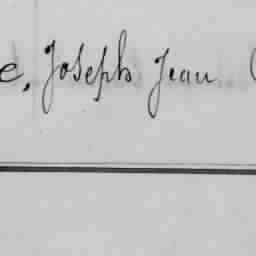 e, Joseph Jean